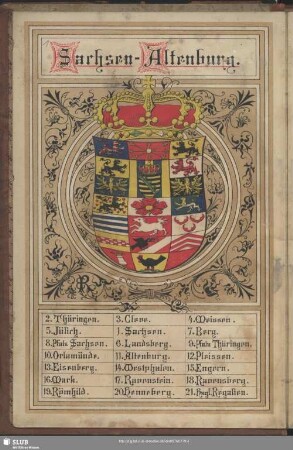 Sachsen-Altenburg.
2. Thüringen. 3. Cleve. 4. Meissen.
5. Jülich. 1. Sachsen. 7. Berg.
8. Pfalz Sachsen. 6. Landsberg. 9. Pfalz Thüringen.
10. Orlamünde. 11. Altenburg. 12. Pleissen.
13. Eisenberg. 14. Westphalen. 15. Engern.
16. Mark. 17. Ravenstein. 18. Ravensberg.
19. Römhild. 20. Henneberg. 21. Regalien.
SLUB